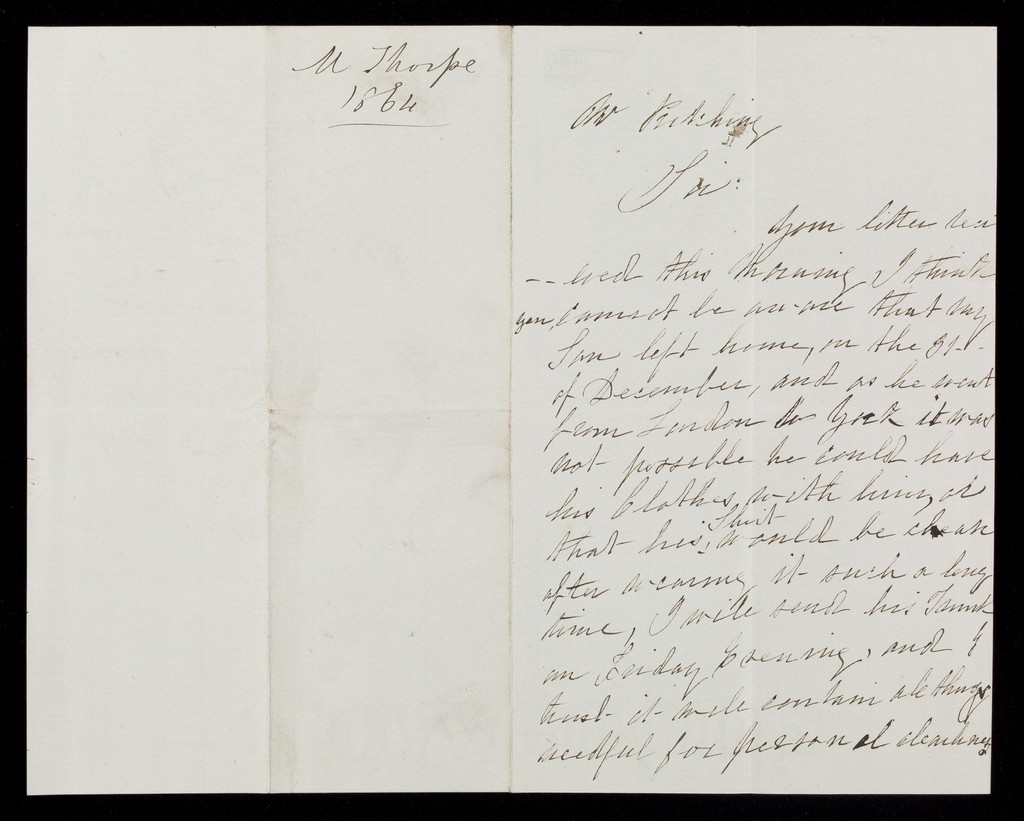 M Thorpe
1864
Mr Kitching
Sir:
Your letter recei
--eved this morning I think
you, cannot be aware that my
Son left home, on the 31st
of December, and as he went
from London to York it was
not possible he could have
his Clothes with him, or
that his Shirt would be clean
after wearing it such a long
time, I will send his Trunk
on Friday Evening, and I
trust it will contain all things
needful for personal cleanliness